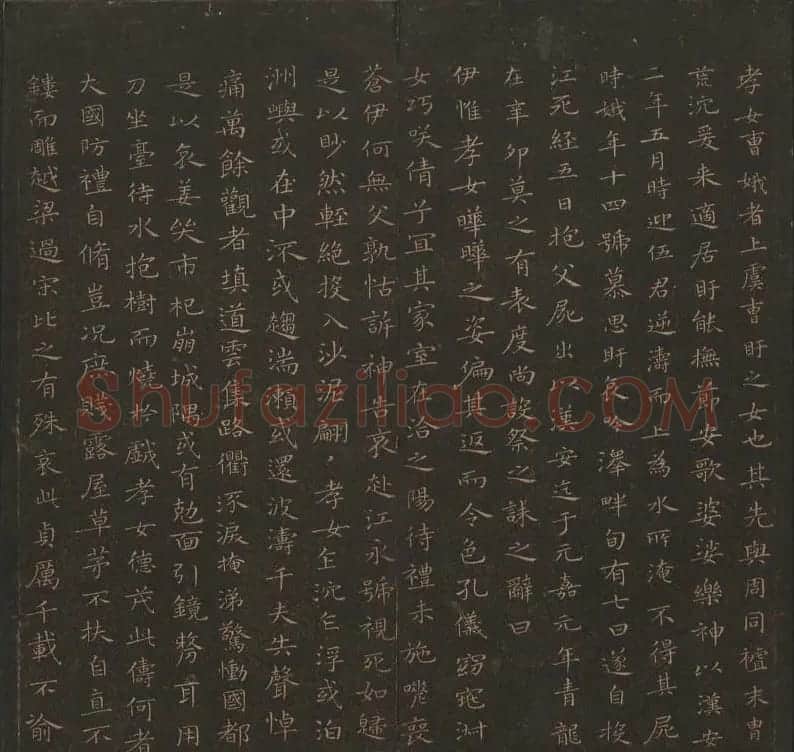 孝女曹娥者上虞曹盱之女也其先與周同祖末胄
荒沉爰来適居盱能撫節安歌婆娑樂神以漢安
二年五月時迎伍君逆濤而上為水所淹不得其屍
時娥年十四號慕思盱哀吟澤畔旬有七日遂自投
江死経五日抱父屍出以漢安迄于元嘉元年青龍
在辛卯莫之有表度尚設祭之誄之辭曰
伊惟孝女曄曄之姿偏其返而令色孔儀窈窕淑
女巧咲倩子宜其家室在洽之陽待禮未施嗟喪
蒼伊何無父孰怙訴神告哀赴江永號視死如歸
是以眇然輕絶投入沙泥翩〻孝女乍沉乍浮或泊
洲嶼或在中流或趨湍瀨或還波濤千夫失聲悼
痛萬餘觀者填道雲集路衢流淚掩涕驚慟國都
是以哀姜哭市杞崩城隅或有尅面引鏡剺耳用
刀坐臺待水抱樹而燒於戲孝女德茂此儔何者
大國防禮自脩豈況庶賤露屋草茅不扶自直不
鏤而雕越梁過宋比之有殊哀此貞厲千載不渝
Shufaziliao.COM